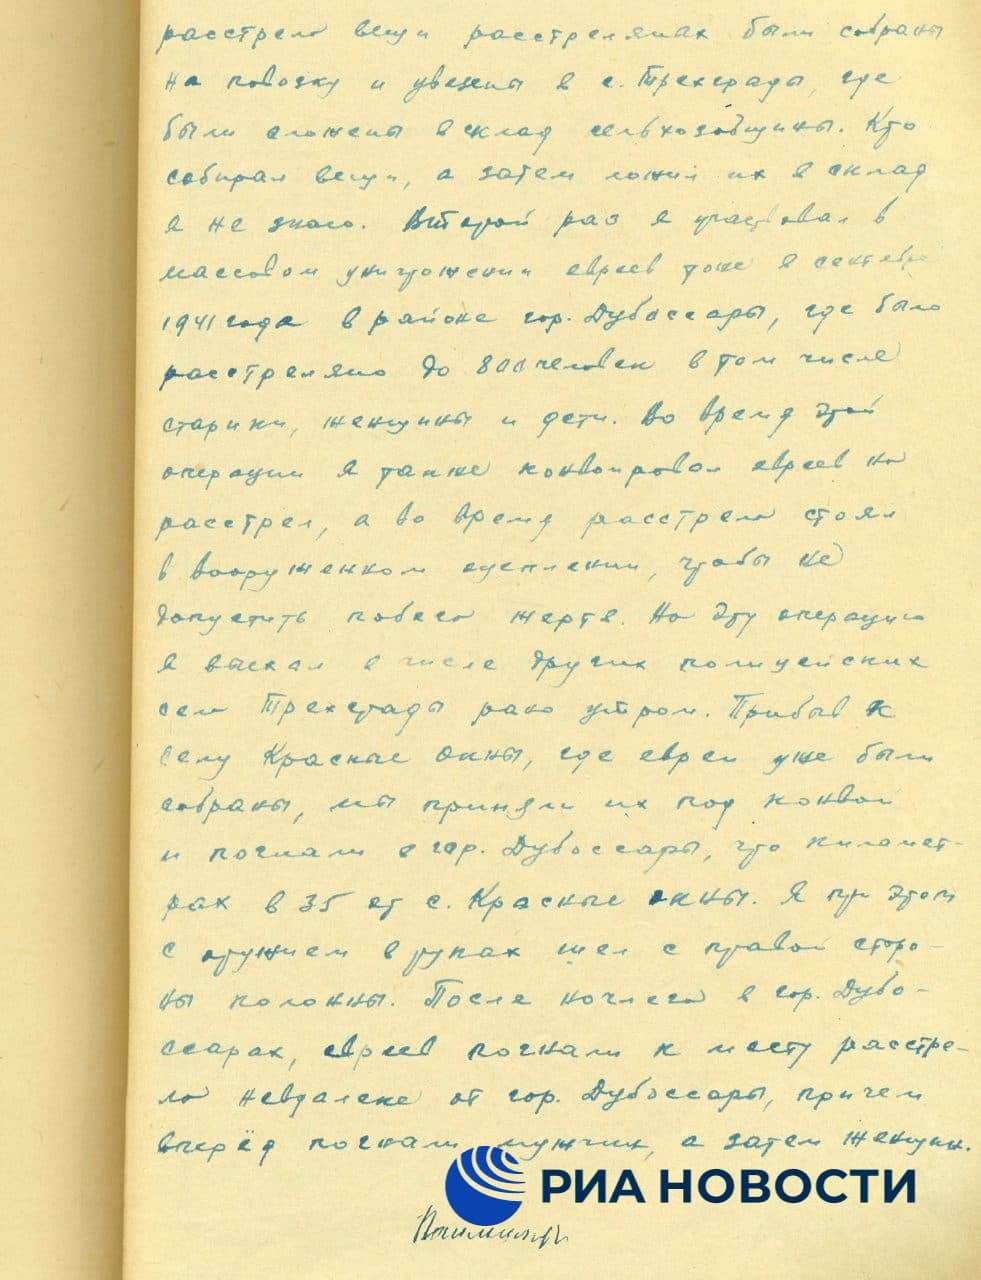 расстрела вещи расстреляных были собраны
на повозку и увезены в с. Трехграды, где
были сложены в склад сельхозобщины. Кто
собирал вещи, а затем ложил их в склад
я не знаю. Второй раз я участвовал в
массовом уничтожении евреев тоже в сентябре
1941 года в районе гор. Дубоссары, где было
расстреляно до 800 человек в том числе
старики, женщины и дети. Во время этой
операции я также конвоировал евреев на
расстрел, а во время расстрела стоял
в вооруженном оцеплении, чтобы не
допустить побега жертв. На эту операцию
я выехал в числе других полицейских
села Трехграды рано утром. Прибыв к
селу Красные Окны, где евреи уже были
собраны, мы приняли их под конвой
и погнали в гор. Дубоссары, что километ-
рах в 35 от с. Красные Окны. Я при этом
с оружием в руках шел с правой сторо-
ны колонны. После ночлега в гор. Дубо-
ссарах, евреев погнали к месту расстре-
ла невдалеке от гор. Дубоссары, причем
вперёд погнали мужчин, а затем женщин.
РИА НОВОСТИ